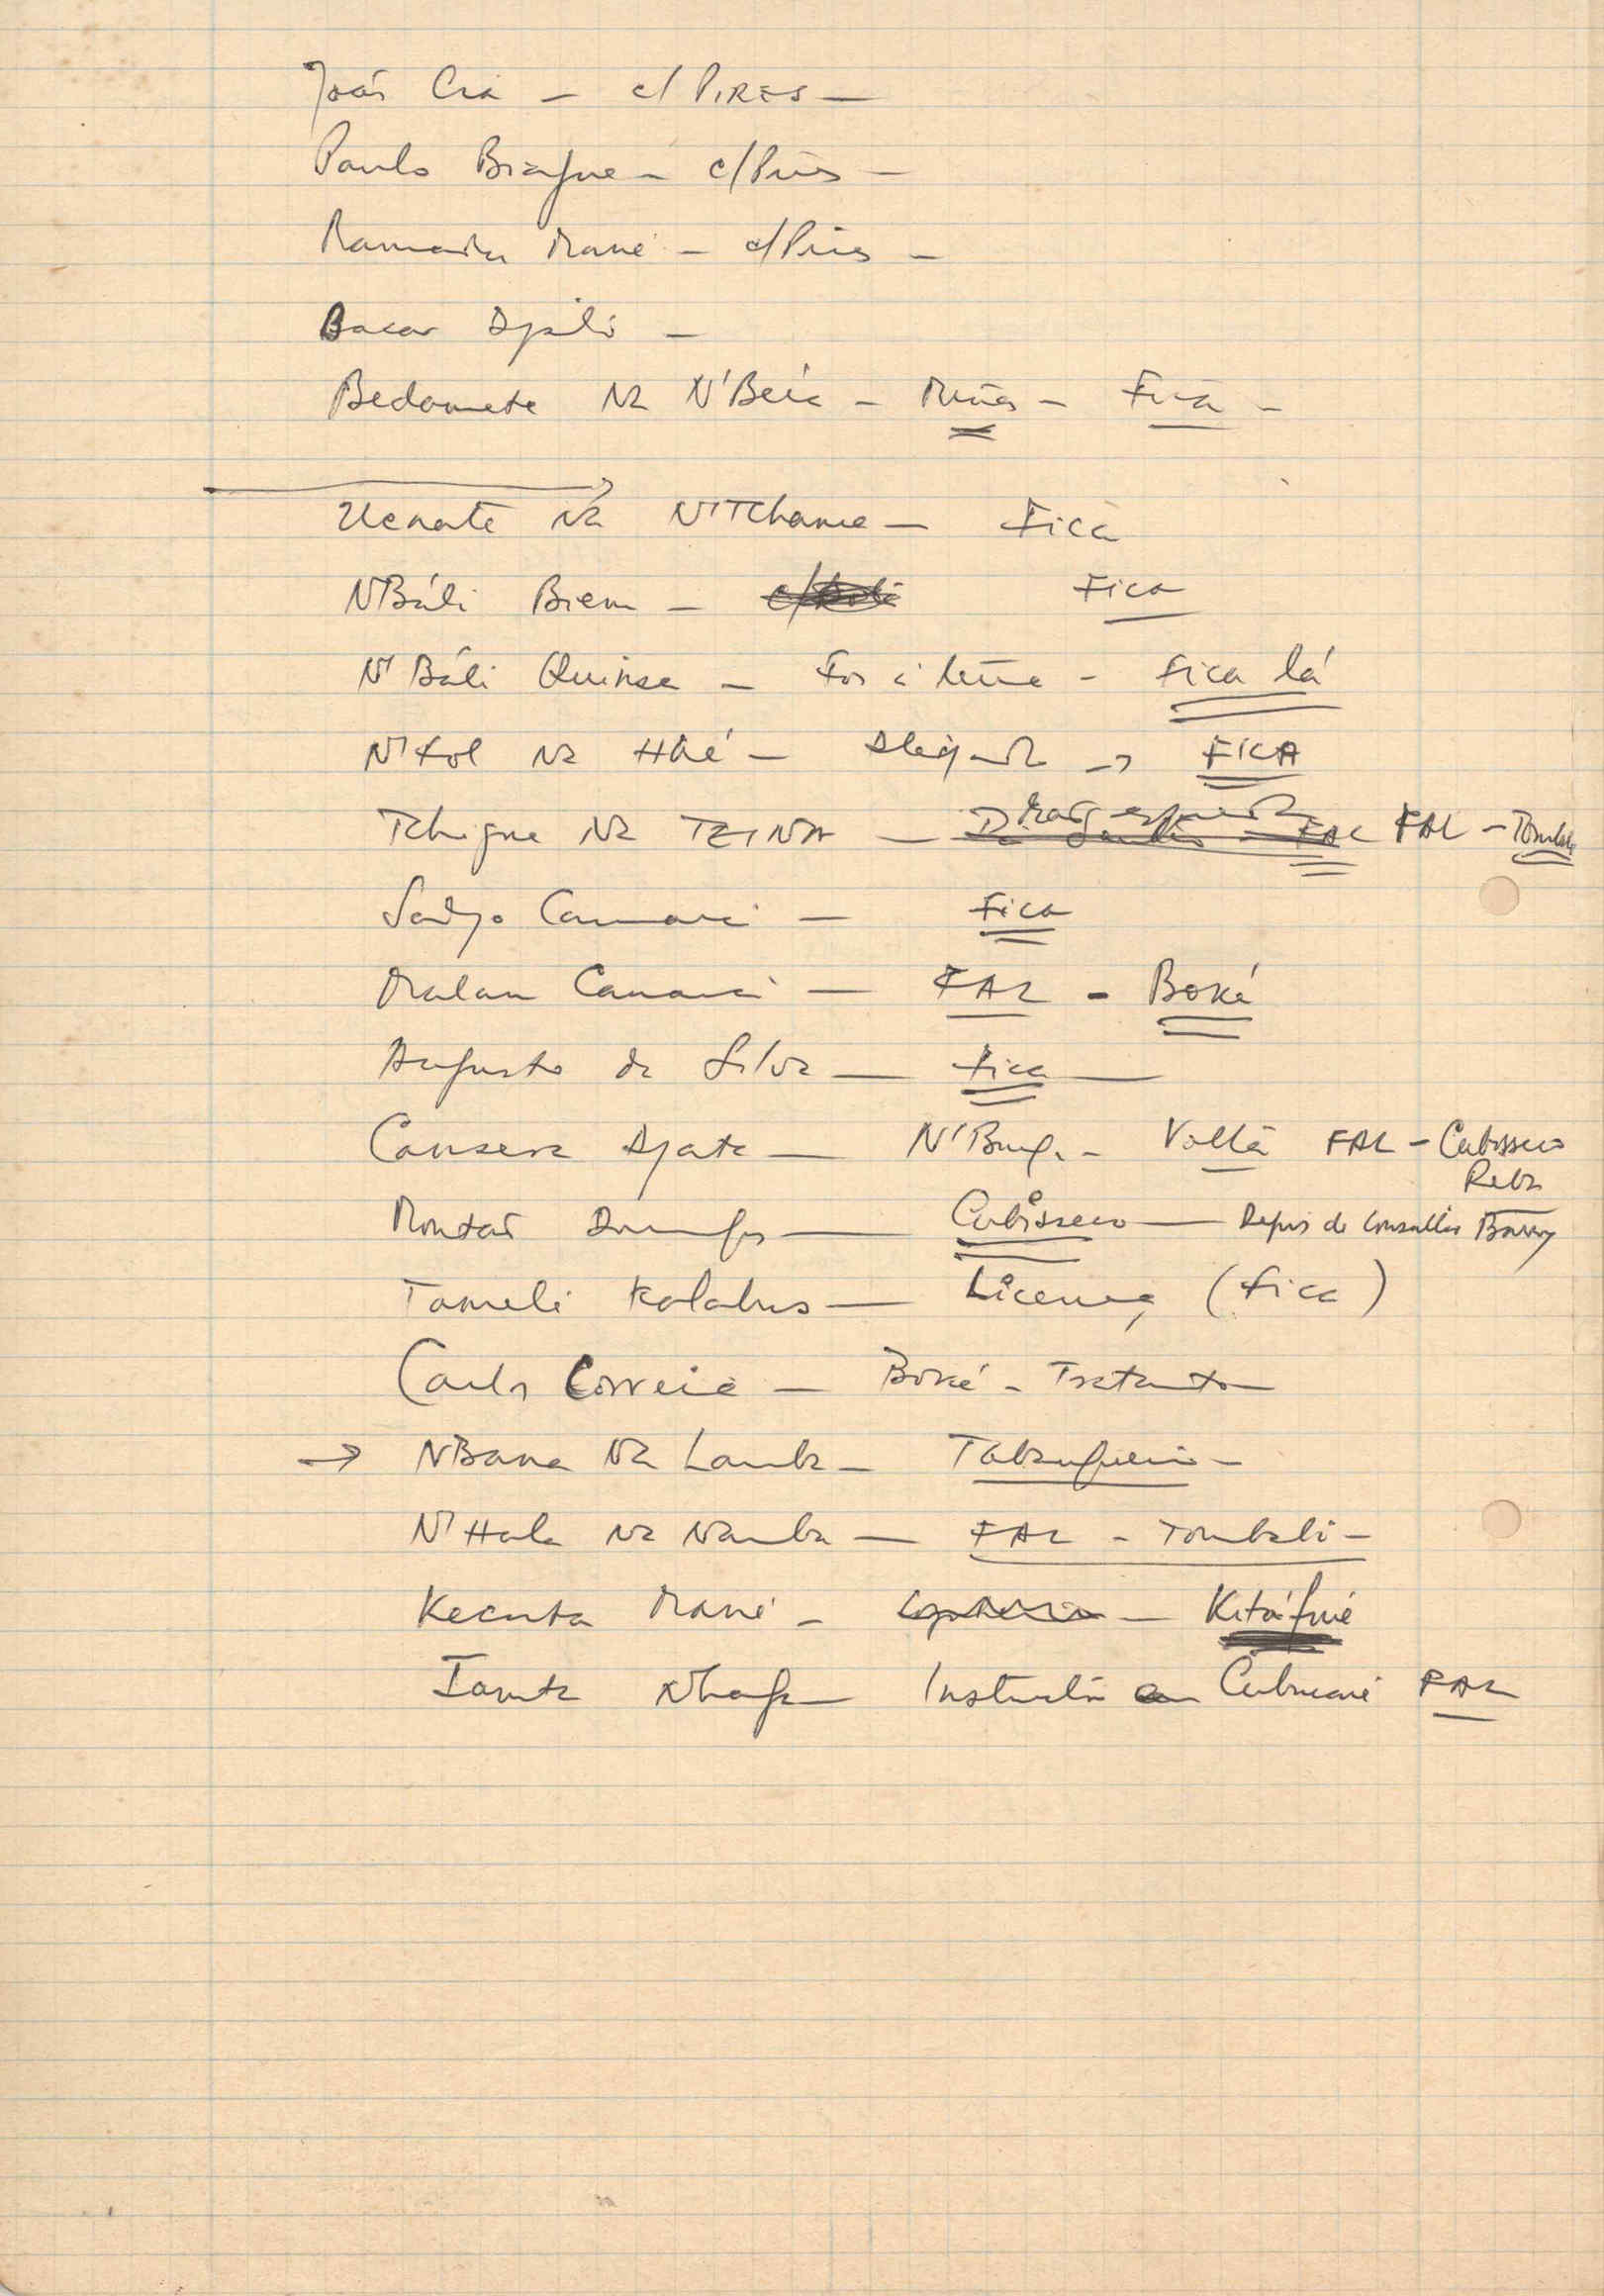 João Cra – c/ PIRES –
Paulo Biague – c/ Pires –
Mamadu Mané – c/ Pires –
Bacar Djaló –
Bedamete Na N'Beia – – Fica –
Uenate Na N'Tchama – Fica
N'Báli Biem – Fica
N'Báli Quinsa – Foi à – fica lá
N'Fol Na Hhé – Aleijado → FICA
Tchigna Na TEINDA – FAL – Tombali
Sadjo Camará – Fica
Malam Camará – FAL – Boké
Augusto da Silva – Fica –
Cansera Djata – – Volta FAL – Cubisseco
Reba
Domingos – Cubisseco – Depois de consultar Barry
Tameli – Licença (fica)
Carlos Correia – Boké – Tratamento
→ N'Bana Na Lamba –
N'Hala Na Namba – FAL – Tombali –
Kecuta Mané – – Kitáfiné
N'haga Cubucaré FAL